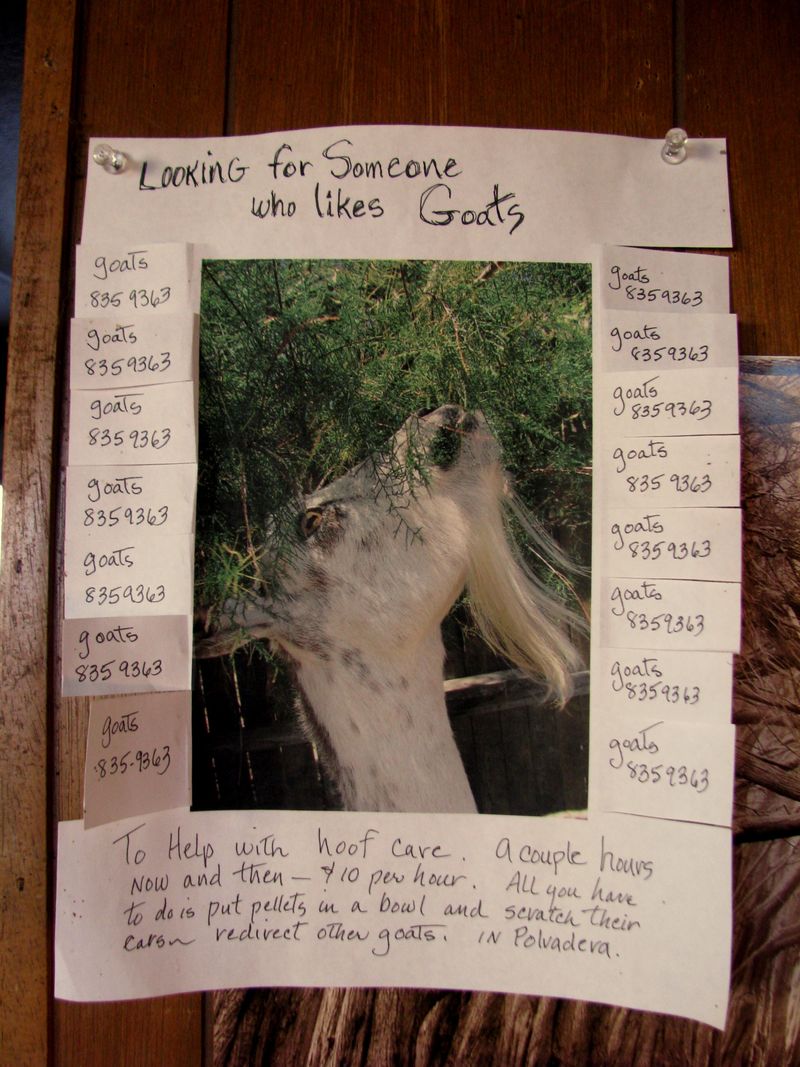 LOOKING for Someone
who likes Goats
goats
835 9363
goats
835 9363
goats
835 9363
goats
835 9363
goats
835 9363
goats
835 9363
goats
835-9363
goats
835 9363
goats
835 9363
goats
835 9363
goats
835 9363
goats
835 9363
goats
835 9363
goats
835 9363
goats
835 9363
To Help with hoof care. A couple hours
Now and then — $10 per hour. All you have
to do is put pellets in a bowl and scratch their
ears redirect other goats. IN Polvadera.